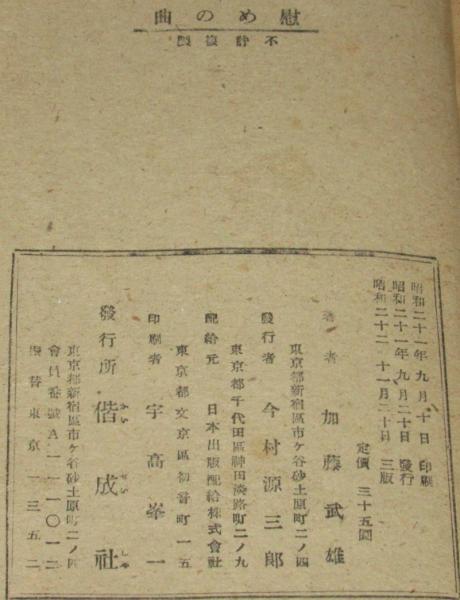 慰めの曲
不許複製
昭和二十一年九月十日 印刷
昭和二十一年九月二十日 發行
昭和二十二 十一月二十日 三版
定價 三十五圓
著者 加藤武雄
東京都新宿區市ケ谷砂土原町二ノ四
發行者 今村源三郎
東京都千代田區神田淡路町二ノ九
配給元 日本出版配給株式會社
東京都文京區初音町一五
印刷者 宇高峯一
發行所 偕成社
かい せい しや
東京都新宿區市ケ谷砂土原町二ノ四
會員番號A一一一〇一二
振替東京一三五二